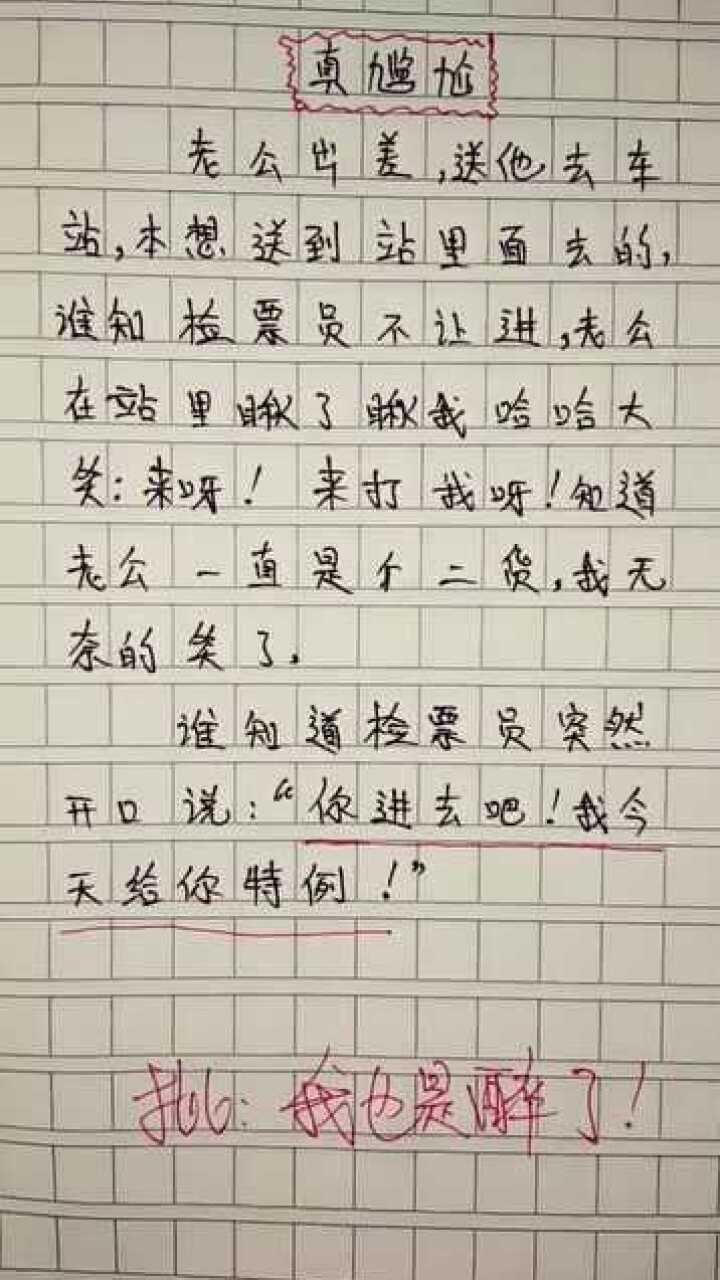 真尴尬
老公出差,送他去车
站,本想送到站里面去的,
谁知检票员不让进,老公
在站里瞅了瞅我哈哈大
笑:来呀!来打我呀!知道
老公一直是个二货,我无
奈的笑了。
谁知道检票员突然
开口说:“你进去吧!我今
天给你特例!”
批:我也是醉了!